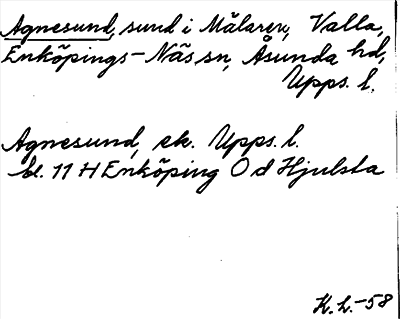 Agnesund, sund i Mälaren, Valla,
Enköpings-Näs sn, Åsunda hd,
Upps. l.
Agnesund, ek. Upps. l.
bl. 11 H Enköping O d Hjulsta
K. L.-58